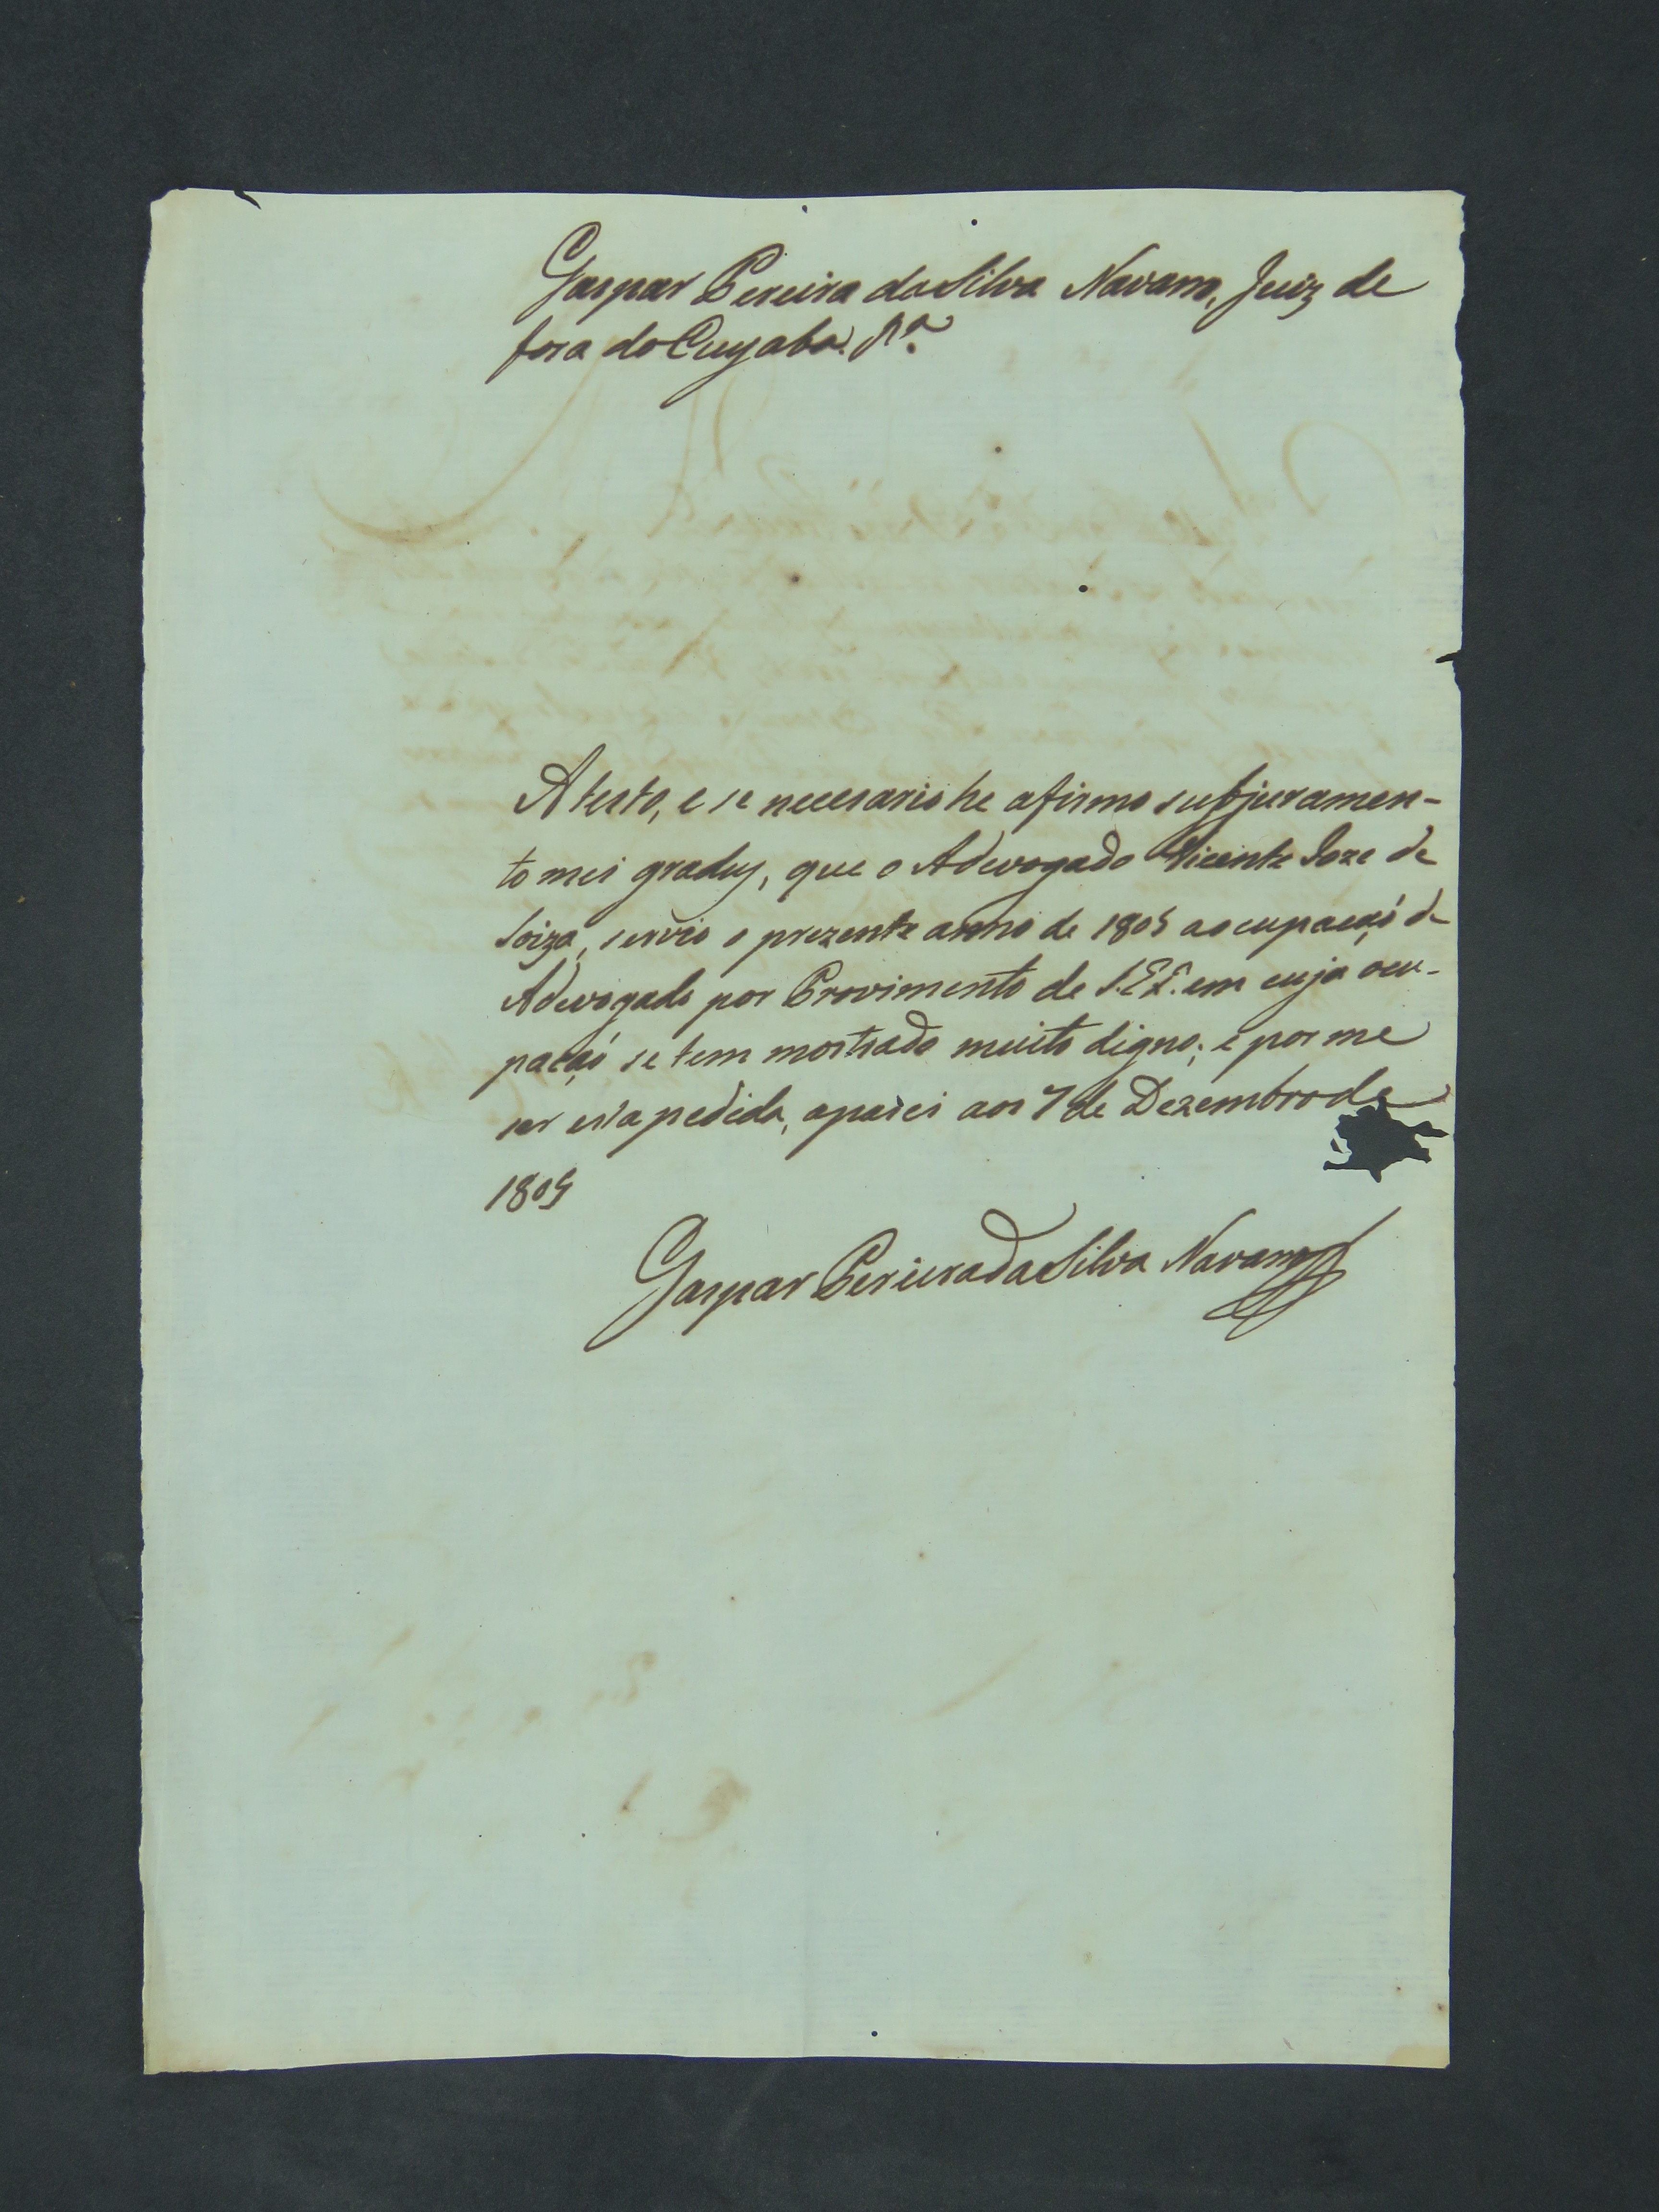 Gaspar Pereira da Silva Navarro, Juiz de
fora do Cuyaba. &.ª
Atesto, e se necesario he afirmo subjuramen-
to mei gradus, que o Adevogado Vicente Joze de
Soiza, servio o prezente anno de 1805 a ocupaçaõ de
Adevogado por Provimento de S. Ex.ª em cuja ocu-
paçaõ se tem mostrado muito digno; e por me
ser esta pedida, apasei aos 7 de Dezembro de
1805
Gaspar Pereira da Silva Navarro